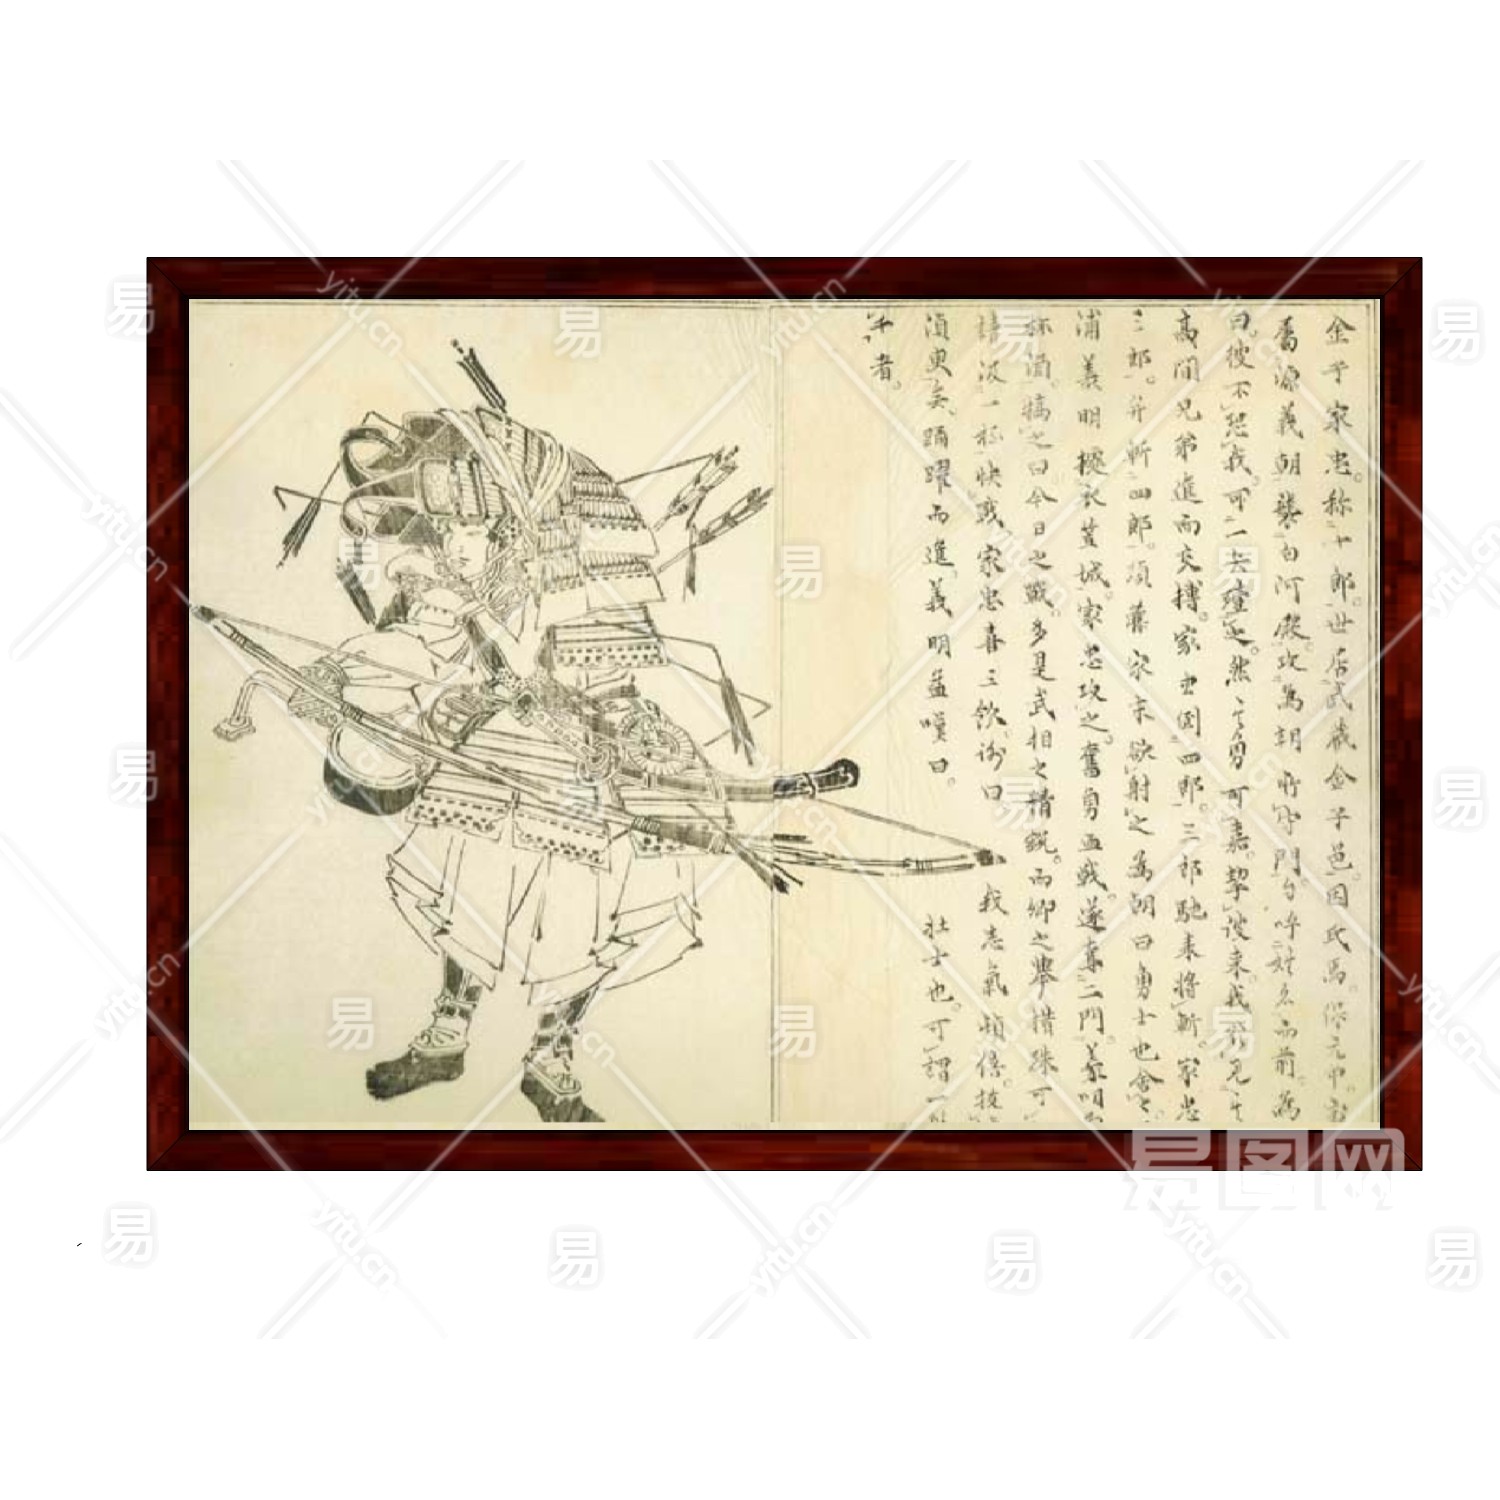 金子家忠。称十郎。世居武蔵金子邑因氏焉。保元中。
属源義朝襲白河殿。攻為朝所守門。自呼姓名而前。為
曰。彼不恐我。可一矢殪之。然其勇可嘉。挈彼来。我欲見其
高間兄弟進而交搏。家忠倒四郎。三郎馳来将斬。家忠
三郎。并斬四郎。須藤家末欲射之為朝曰勇士也舎之。
浦義明據衣笠城。家忠攻之。奮勇血戦。遂奪二門。義明
杯酒。犒之曰今日之戦。多是武相之精鋭。而卿之挙措殊可
請汲一極快戦。家忠喜三飲。謝曰我志氣頓倍。抜
湏臾矣。踊躍而進。義明益嘆曰。壮士也。可謂一
千者。
易图网
易
yitu.cn